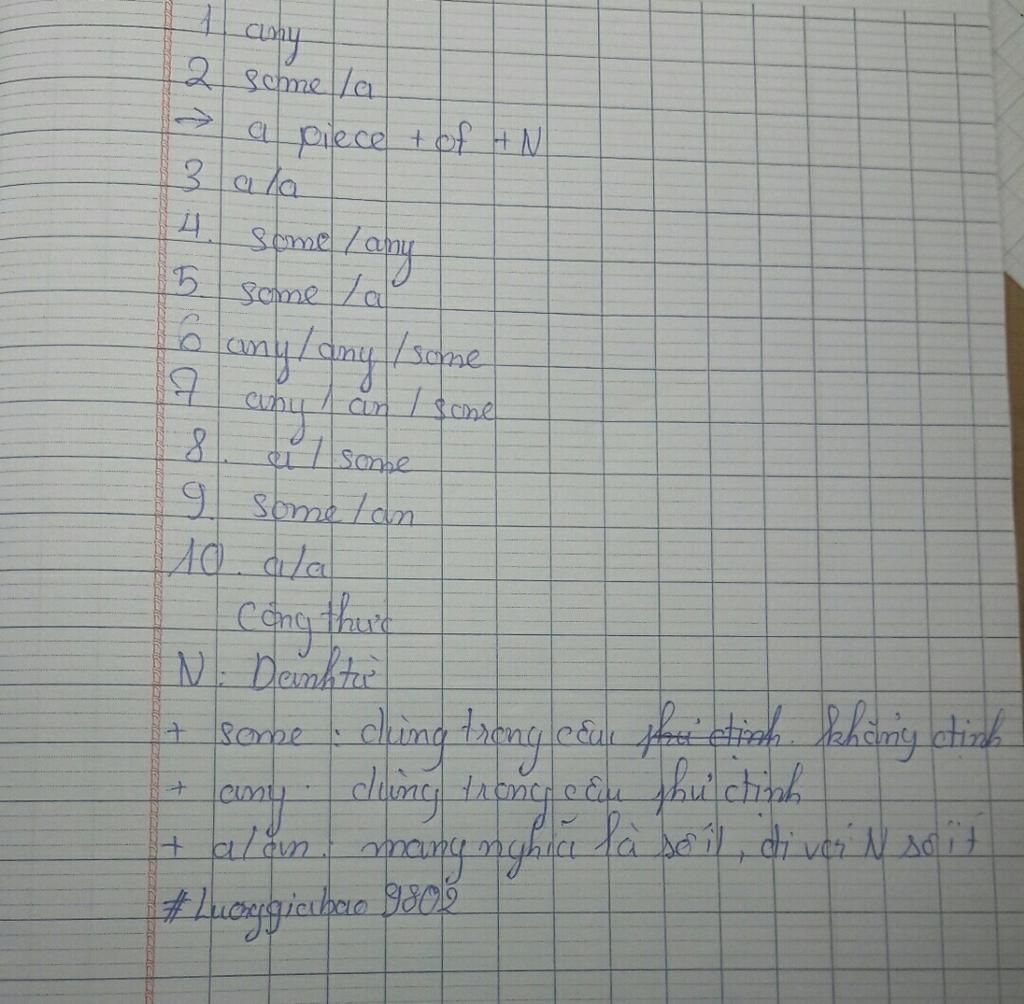 1 any
2 some/a
→ a piece + of + N
3 a/a
4. some/any
5 some/a
6 any/any/some
7 any/an/some
8. a/some
9 some/an
10. a/a
Công thức
N: Danh từ
+ some: dùng trong câu phủ định. khẳng định
+ any: dùng trong câu phủ định
+ a/an: mang nghĩa là số ít, đi với N số ít
#Luonggiabao 9802